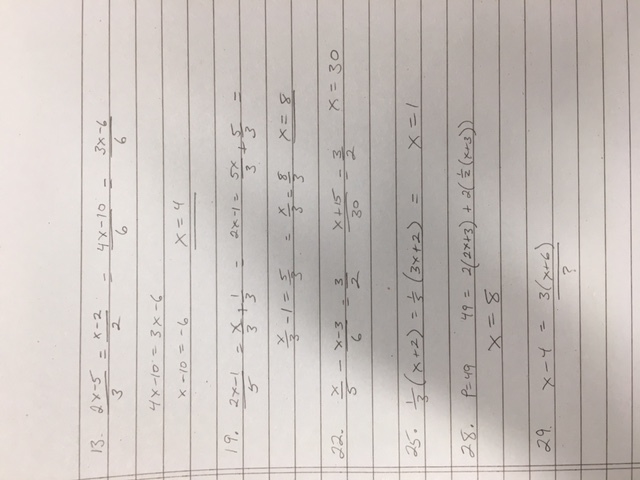 13. 2x-5/3 = x-2/2 = 4x-10/6 = 3x-6/6
4x-10=3x-6
x-10=-6 x=4
19. 2x-1/5 = x/3 + 1/3 - 2x-1= 5x/3 + 5/3 =
x/3 -1 = 5/3 = x/3 = 8/3 x=8
22. x/5 - x-3/6 = 3/2 x+15/30 = 3/2 x=30
25. 1/3 (x+2) = 1/5 (3x+2) = x=1
28. P=49 49 = 2(2x+3) + 2(1/2(x+3))
x=8
29. x-4 = 3(x+6)
?